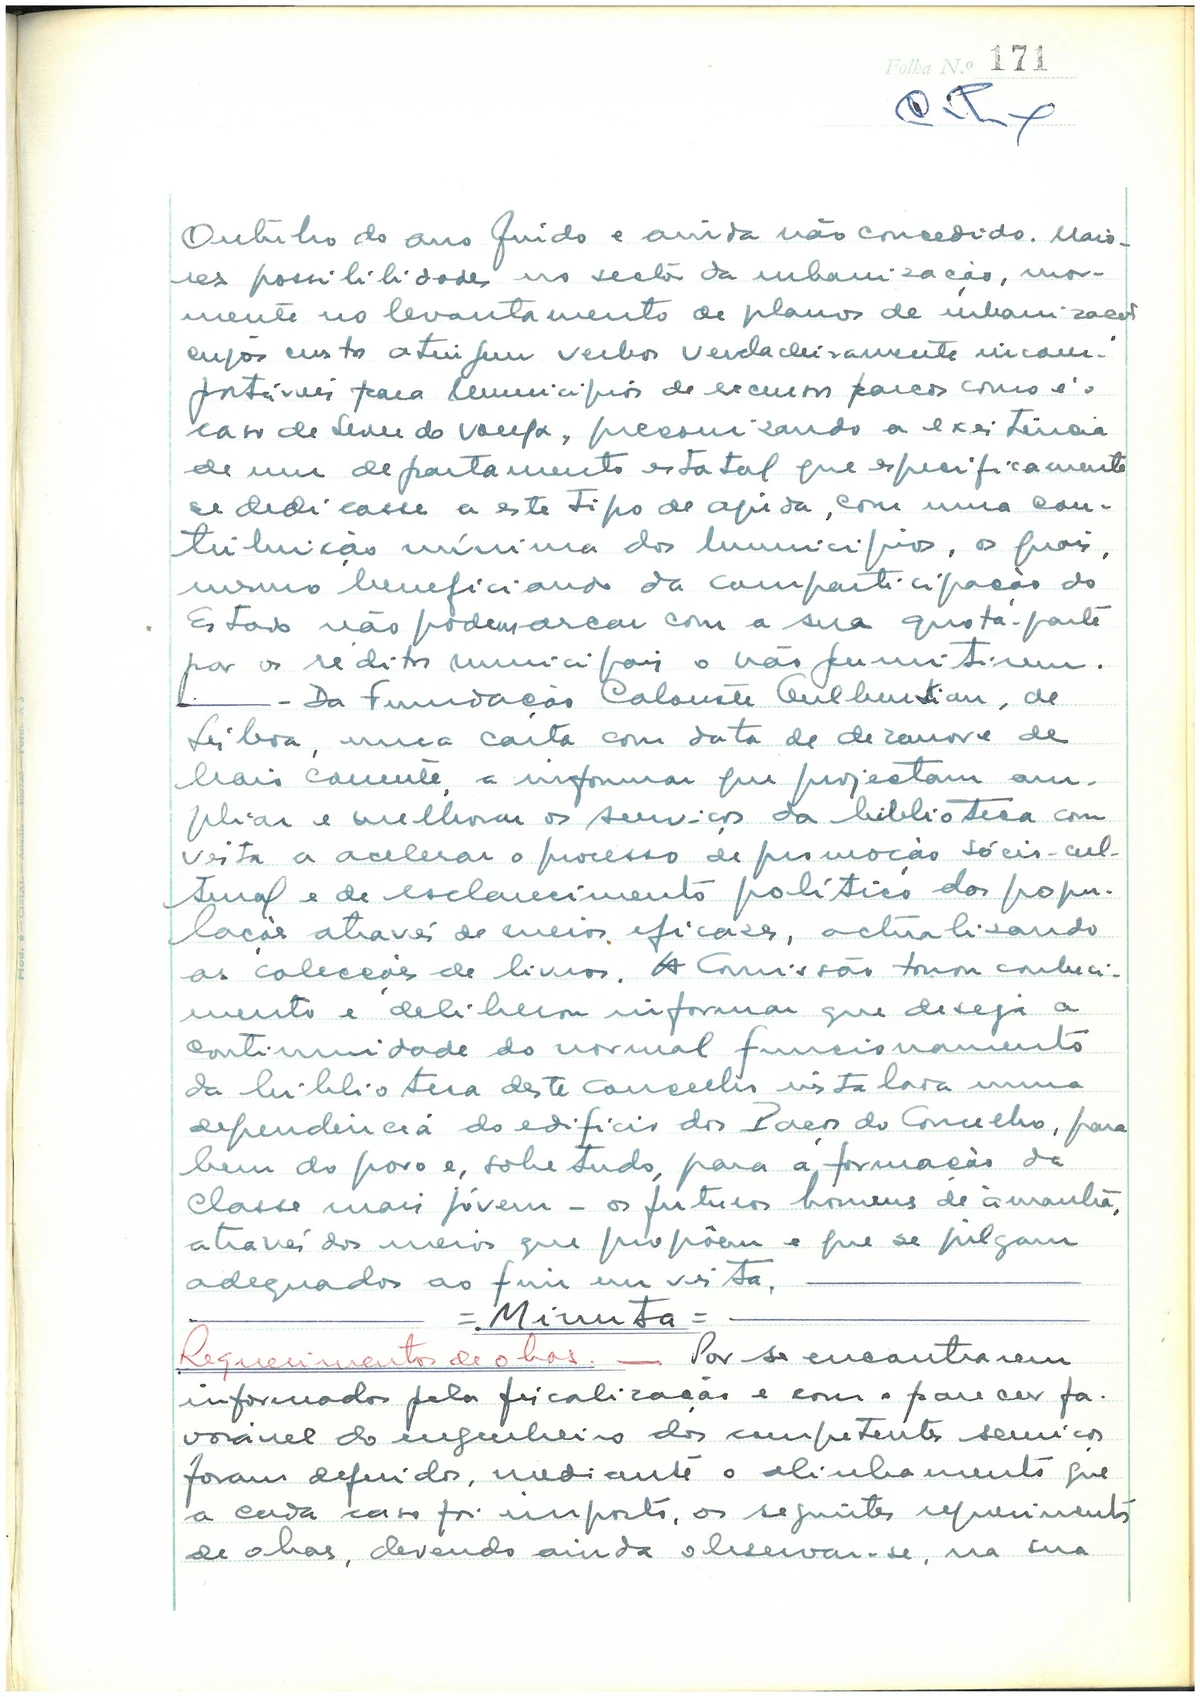 Folha N.º 171
Outubro do ano findo e ainda não concedido. Maio-
res possibilidades no sector da urbanização, mor-
mente no levantamento de planos de urbanização
cujos custos atingem verbas verdadeiramente incom-
portáveis para Municípios de recursos parcos como é o
caso de Sever do Vouga, preconizando a existência
de um departamento estatal que especificamente
se dedicasse a este tipo de ajuda, com uma con-
tribuição mínima dos Municípios, os quais,
mesmo beneficiando da comparticipação do
Estado não podem arcar com a sua quota-parte
por os réditos municipais o não permitirem.
- Da Fundação Calouste Gulbenkian, de
Lisboa, uma carta com data de dezanove de
Maio corrente, a informar que projectam am-
pliar e melhorar os serviços da biblioteca com
vista a acelerar o processo de promoção sócio-cul-
tural e de esclarecimento político das popu-
lações através de meios eficazes, actualizando
as colecções de livros. A Comissão tomou conheci-
mento e deliberou informar que deseja a
continuidade do normal funcionamento
da biblioteca deste concelho instalada numa
dependência do edifício dos Paços do Concelho, para
bem do povo e, sobretudo, para a formação da
classe mais jóvem - os futuros homens de àmanhã,
através dos meios que propõem e que se julgam
adequados ao fim em vista.
= Minuta =
Requerimentos de obras. — Por se encontrarem
informados pela fiscalização e com o parecer fa-
vorável do engenheiro dos competentes serviços
foram deferidos, mediante o alinhamento que
a cada caso foi imposto, os seguintes requerimentos
de obras, devendo ainda observar-se, na sua